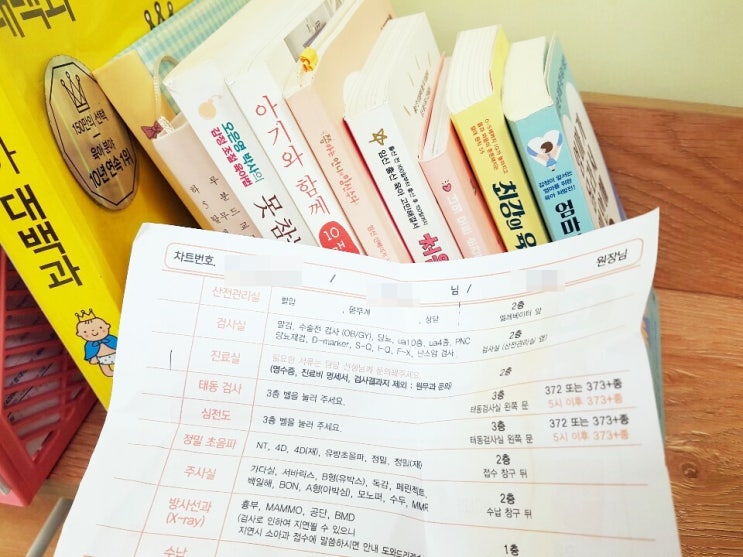 대백과
150만의 선택
육아 분야
10년 연속 1위
대백과
오은영 박사의
감정 조절 육아법
못 참
아기와 함께
10
엄마
차트번호. / 님 / 원장님
산전관리실 혈압 , 몸무게 , 상담 2층 엘레베이터 앞
검사실 빈혈, 수술전 검사 (OB/GY), 당뇨, ua10종, ua4종, PNC
당뇨재검, D-marker, S-Q, I-Q, F-X, 난소암 검사 2층 검사실 (산전관리실 옆)
진료실 필요한 서류는 담당 선생님께 문의해주세요.
(영수증, 진료비 명세서, 검사결과지 제외 : 원무과 문의) 2층
태동 검사 3층 벨을 눌러 주세요. 3층 태동검사실 왼쪽 문 372 또는 373+종
5시 이후 373+종
심전도 3층 벨을 눌러 주세요. 3층 태동검사실 왼쪽 문 372 또는 373+종
5시 이후 373+종
정밀 초음파 NT, 4D, 4D(재), 유방초음파, 정밀, 정밀(재) 2층 접수 창구 뒤
주사실 가다실, 서바릭스, B형(유박스), 독감, 페린젝트,
백일해, BON, A형(아박심), 모노퍼, 수두, MMR 2층 수납 창구 뒤
방사선과 (X-ray) 흉부, MAMMO, 공단, BMD
(검사로 인하여 지연될 수 있으니
지연시 소아과 접수에 말씀하시면 안내 도와드리겠 1층
수납